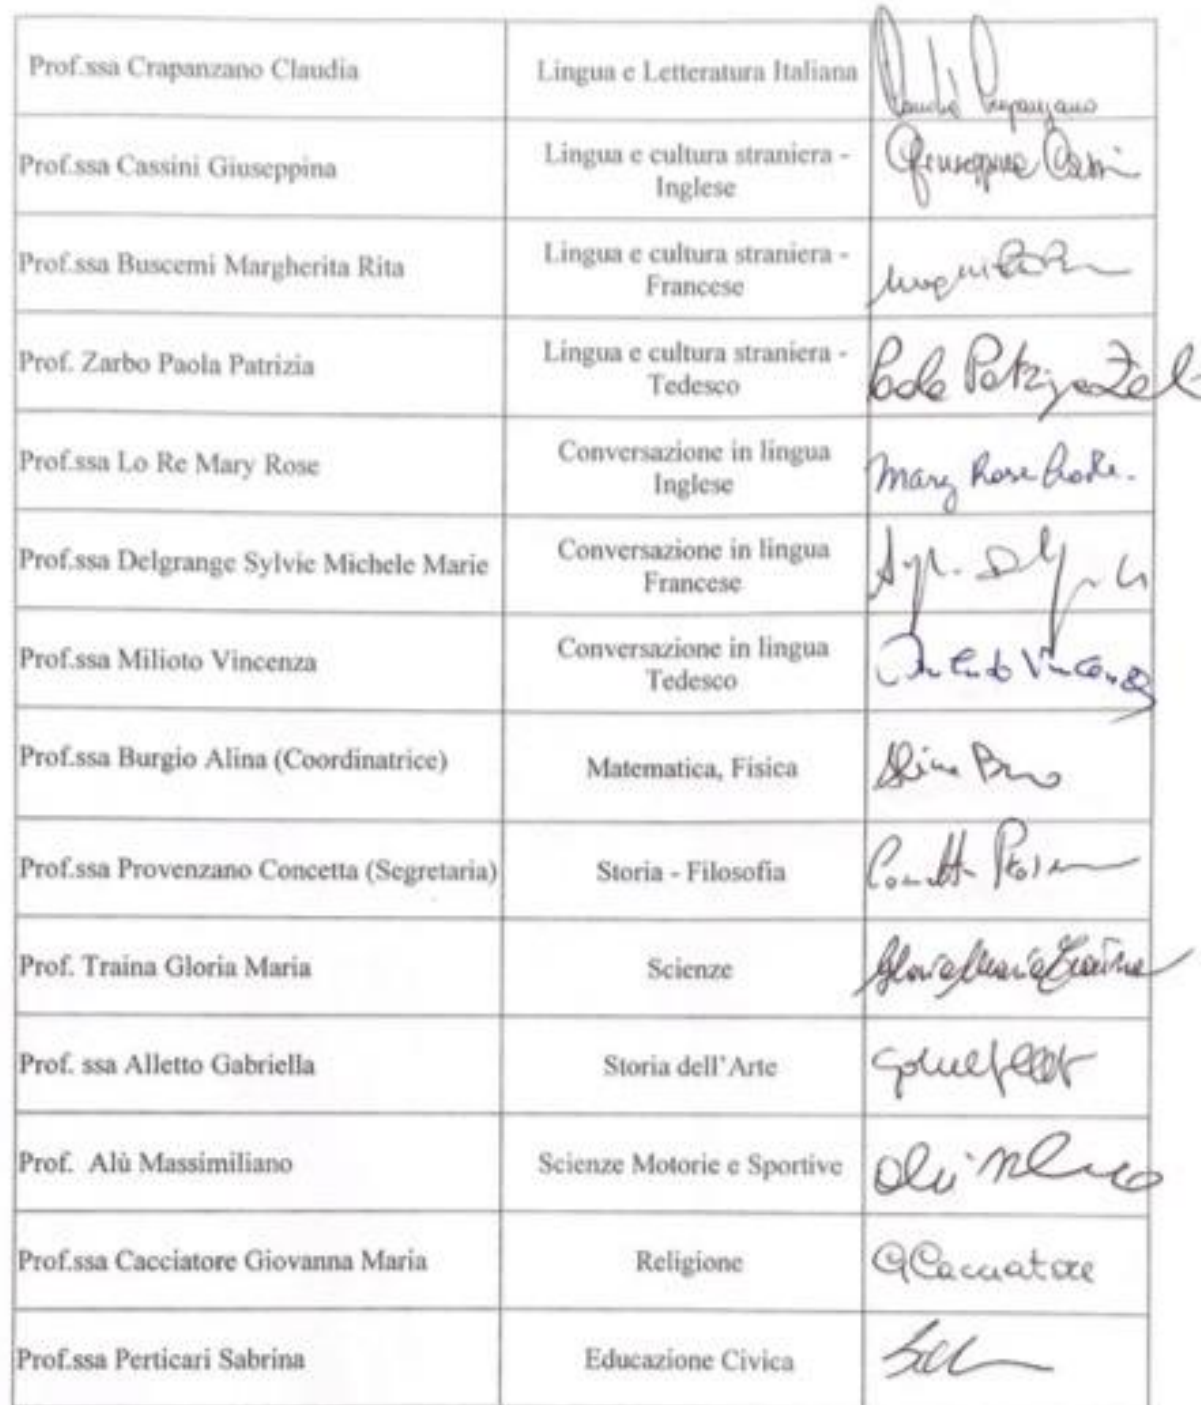 Prof.ssa Crapanzano Claudia
Lingua e Letteratura Italiana
Claudia Crapanzano
Prof.ssa Cassini Giuseppina
Lingua e cultura straniera -
Inglese
Giuseppina Cassini
Prof.ssa Buscemi Margherita Rita
Lingua e cultura straniera -
Francese
Prof. Zarbo Paola Patrizia
Lingua e cultura straniera -
Tedesco
Paola Patrizia
Prof.ssa Lo Re Mary Rose
Conversazione in lingua
Inglese
Mary Rose Lo Re.
Prof.ssa Delgrange Sylvie Michele Marie
Conversazione in lingua
Francese
Prof.ssa Milioto Vincenza
Conversazione in lingua
Tedesco
Vincenza
Prof.ssa Burgio Alina (Coordinatrice)
Matematica, Fisica
Alina
Prof.ssa Provenzano Concetta (Segretaria)
Storia - Filosofia
Prof. Traina Gloria Maria
Scienze
Gloria Maria Traina
Prof. ssa Alletto Gabriella
Storia dell'Arte
Prof. Alù Massimiliano
Scienze Motorie e Sportive
Alù
Prof.ssa Cacciatore Giovanna Maria
Religione
G Cacciatore
Prof.ssa Perticari Sabrina
Educazione Civica